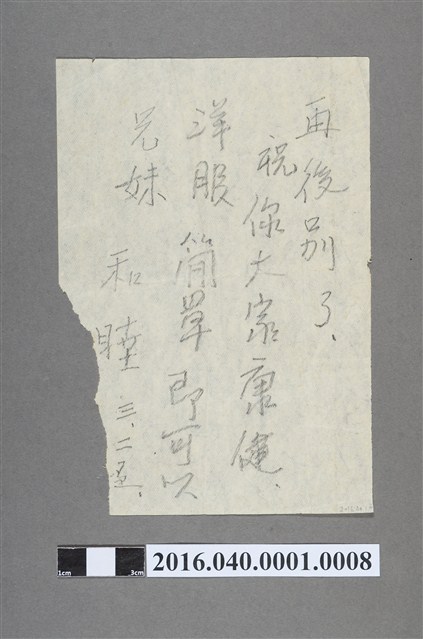 再後別了、
祝你大家康健、
洋服簡單即可以
兄妹和睦三、二五、
1cm
3cm
2016.040.0001.0008